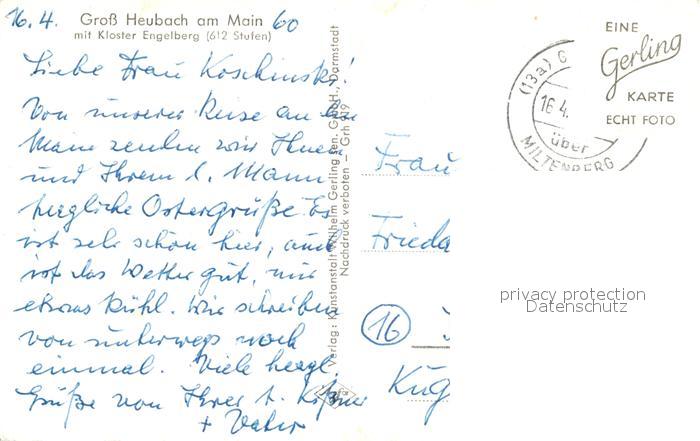 16.4. 60
Groß Heubach am Main
mit Kloster Engelberg (612 Stufen)
Liebe Frau Koschinski!
Von unserer Reise an den
Main senden wir Ihnen
und Ihrem l. Mann
herzliche Ostergrüße. Es
ist sehr schön hier, auch
ist das Wetter gut, nur
etwas kühl. Wir schreiben
von unterwegs noch
einmal. Viele herzl.
Grüße von Ihrer
+ Vater
Verlag: Kunstanstalt Wilhelm Gerling sen. G.m.b.H., Darmstadt
Nachdruck verboten — Grh
EINE
Gerling
KARTE
ECHT FOTO
(13a) G
16.4.
über
MILTENBERG
Frau
Frieda
16
Kug
privacy protection
Datenschutz